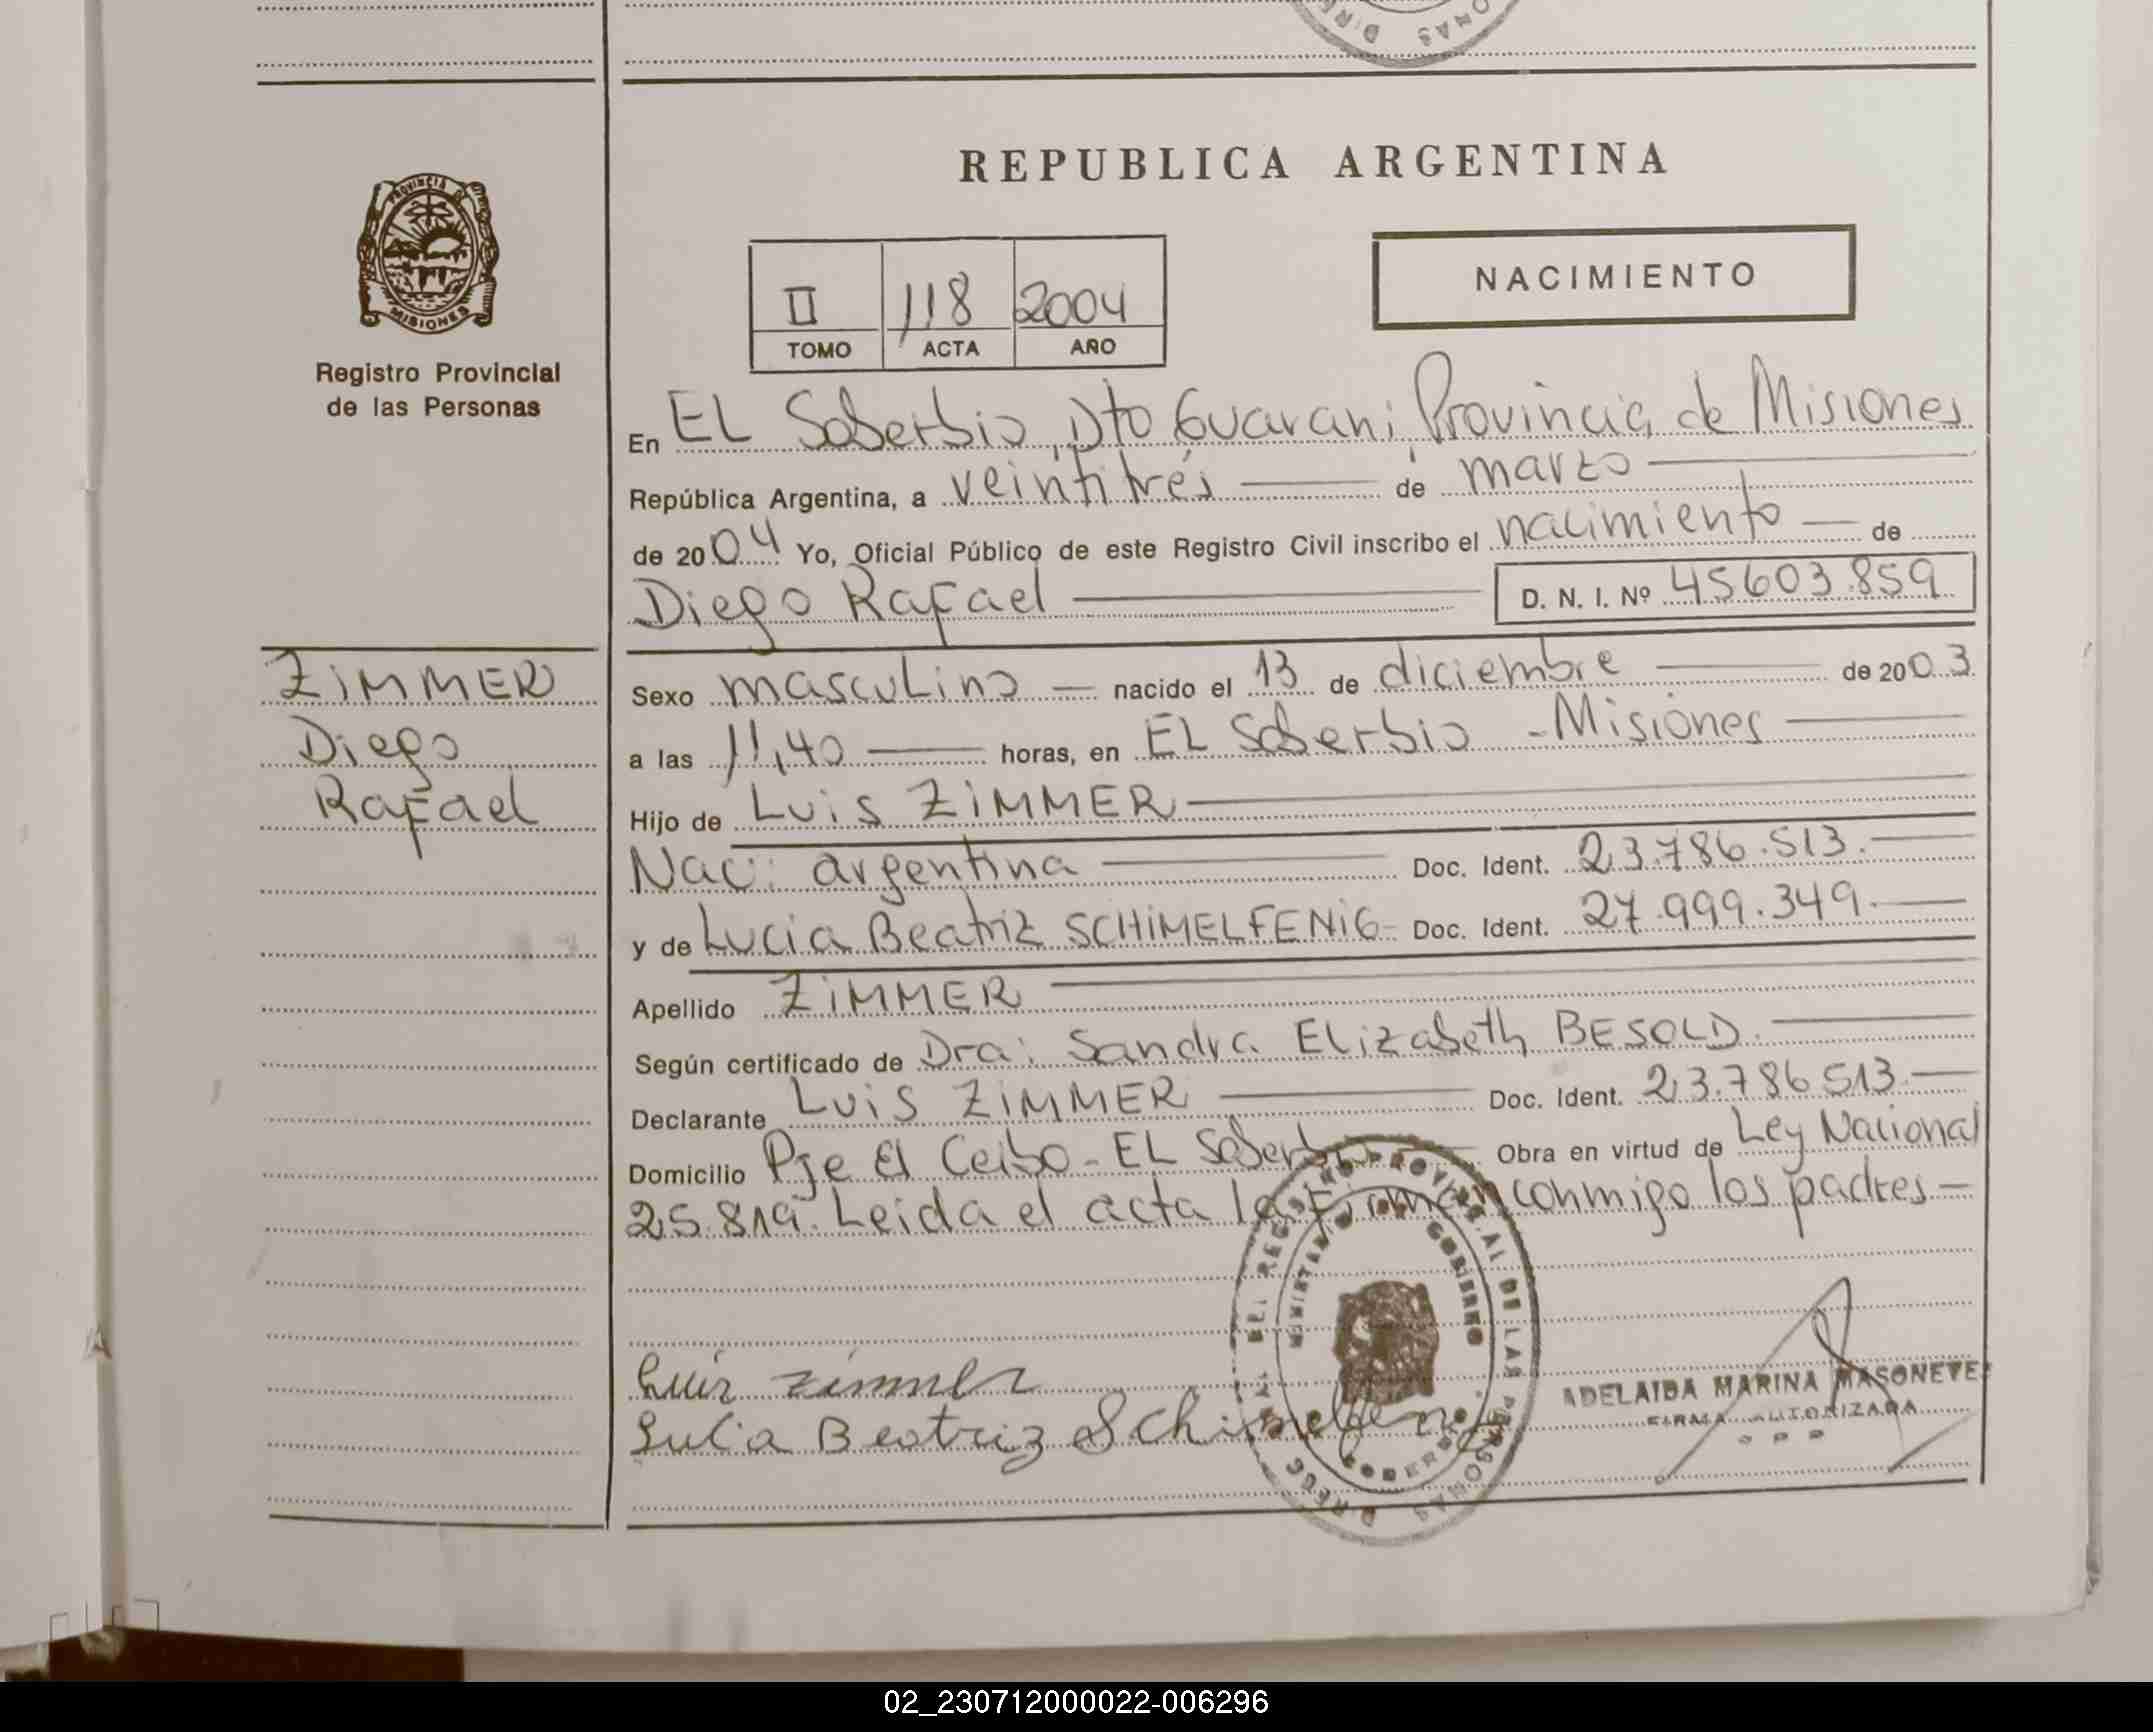 REPUBLICA ARGENTINA
PROVINCIA DE
MISIONES
Registro Provincial
de las Personas
NACIMIENTO
II 118 2004
TOMO ACTA AÑO
En EL Soberbio, Dto Guarani Provincia de Misiones
República Argentina, a veintitrés de marzo
de 2004 Yo, Oficial Público de este Registro Civil inscribo el nacimiento de
Diego Rafael D. N. I. Nº 45603.859
ZIMMER
Diego
Rafael
Sexo masculino nacido el 13 de diciembre de 2003
a las 11,40 horas, en EL Soberbio - Misiones
Hijo de Luis ZIMMER
Nac: argentina Doc. Ident. 23.786.513.
y de Lucia Beatriz SCHIMELFENIG Doc. Ident. 27.999.349.
Apellido ZIMMER
Según certificado de Dra: Sandra Elizabeth BESOLD.
Declarante Luis ZIMMER Doc. Ident. 23.786513.
Domicilio Pje El Ceibo - EL Soberbio Obra en virtud de Ley Nacional
25.819. Leida el acta la firman conmigo los padres
Luis Zimmer
Lucia Beatriz Schimelfenig
ADELAIDA MARINA MASONEVE
FIRMA AUTORIZADA
02_230712000022-006296